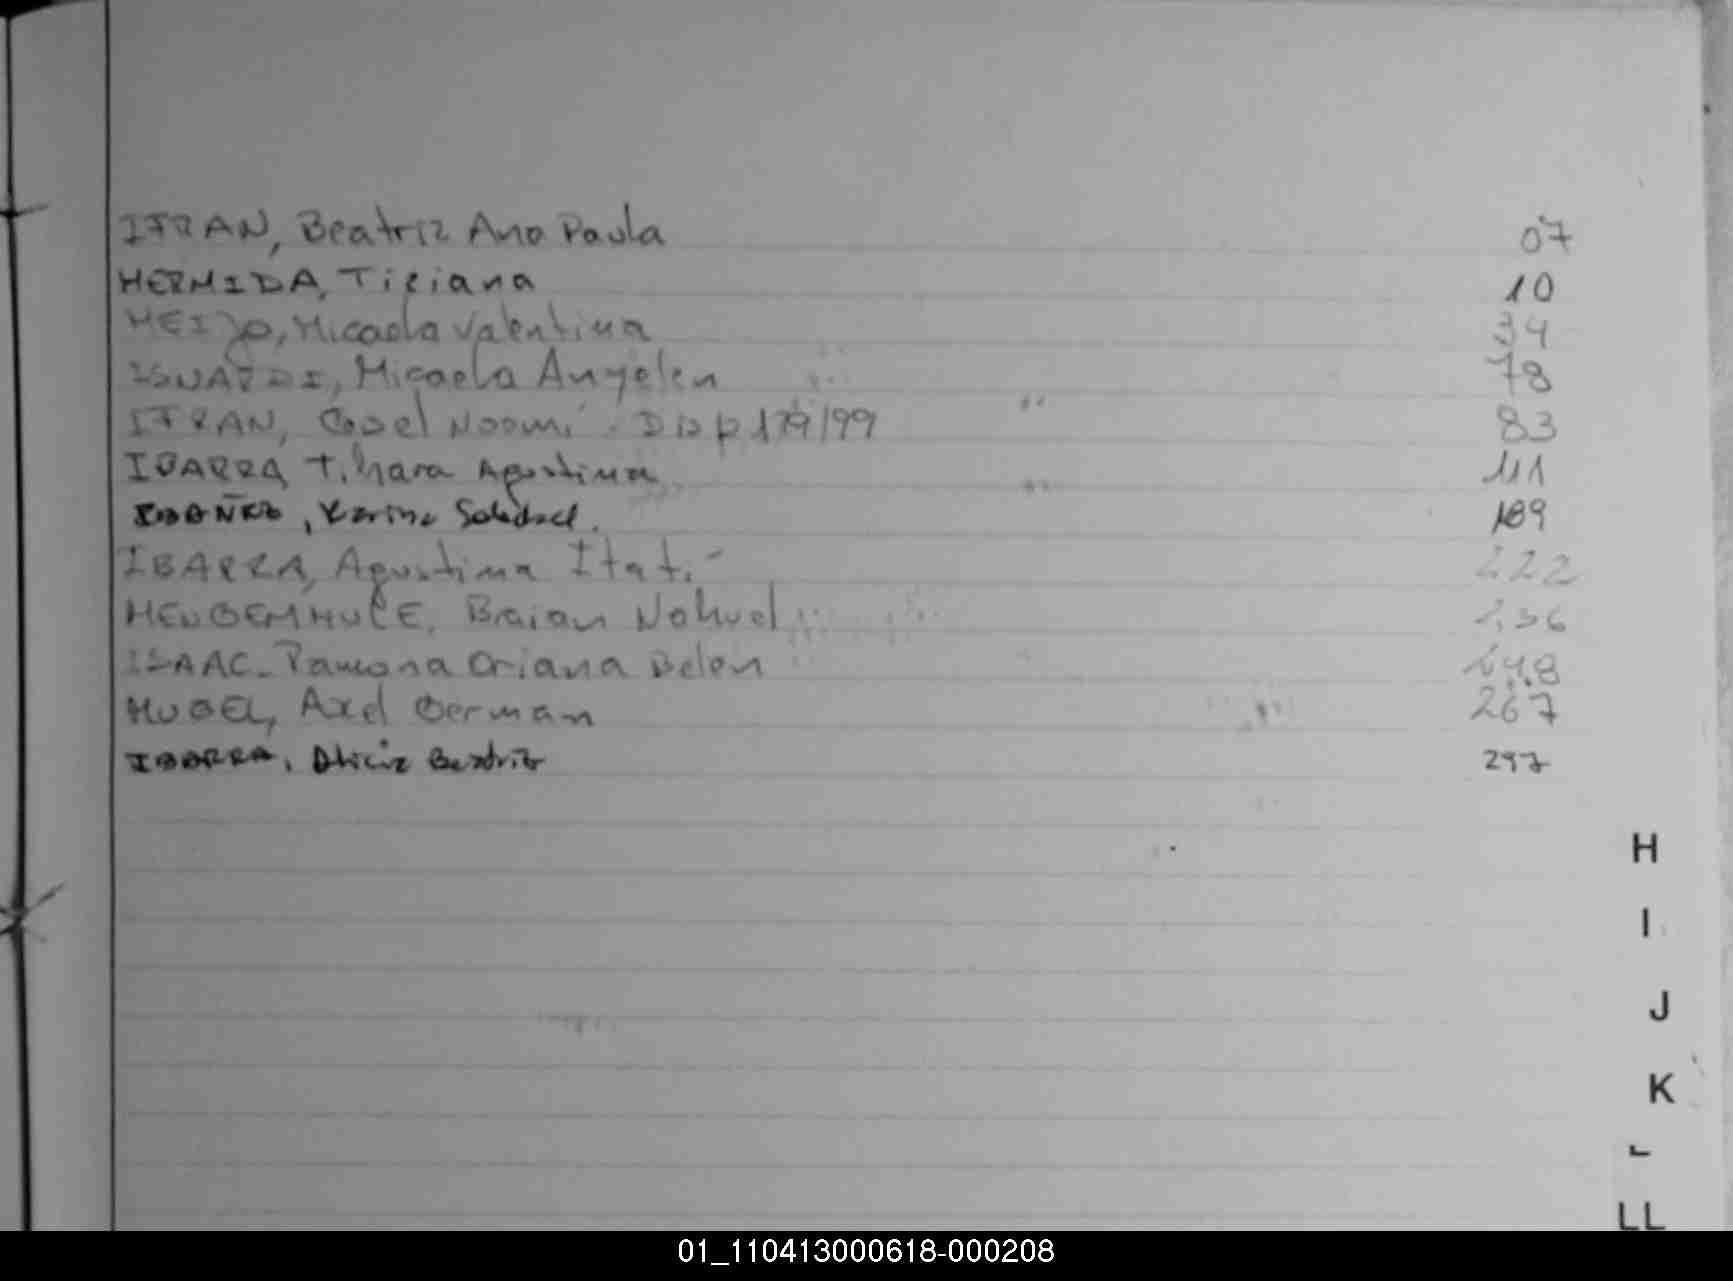 IFRAN, Beatriz Ana Paula 07
HERMIDA, Tiziana 10
MEIJO, Micaela Valentina 34
ISNARDI, Micaela Anyelen 78
IFRAN, Noemi Disp 179/99 83
IBARRA Tihara Agustina 111
IBAÑEZ, Karina Soledad. 189
IBARRA, Agustina Itatí 222
HENGEMHULE, Braian Nahuel 236
ISAAC Ramona Oriana Belen 248
HUGEL, Axel German 267
IBARRA, Alicia Beatriz 297
H
I
J
K
L
LL
01_110413000618-000208